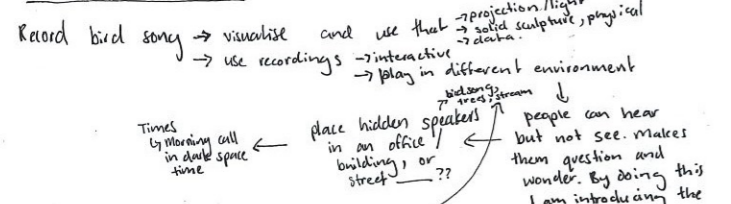 → projection/light
Record bird song → visualise and use that → solid sculpture, physical
→ data.
→ use recordings → interactive
→ play in different environment
birdsong,
trees, stream
Times
↳ Morning call
in dark space
time
place hidden speakers
in an office /
building, or
street ___ ??
people can hear
but not see. Makes
them question and
wonder. By doing this
I am introducing the